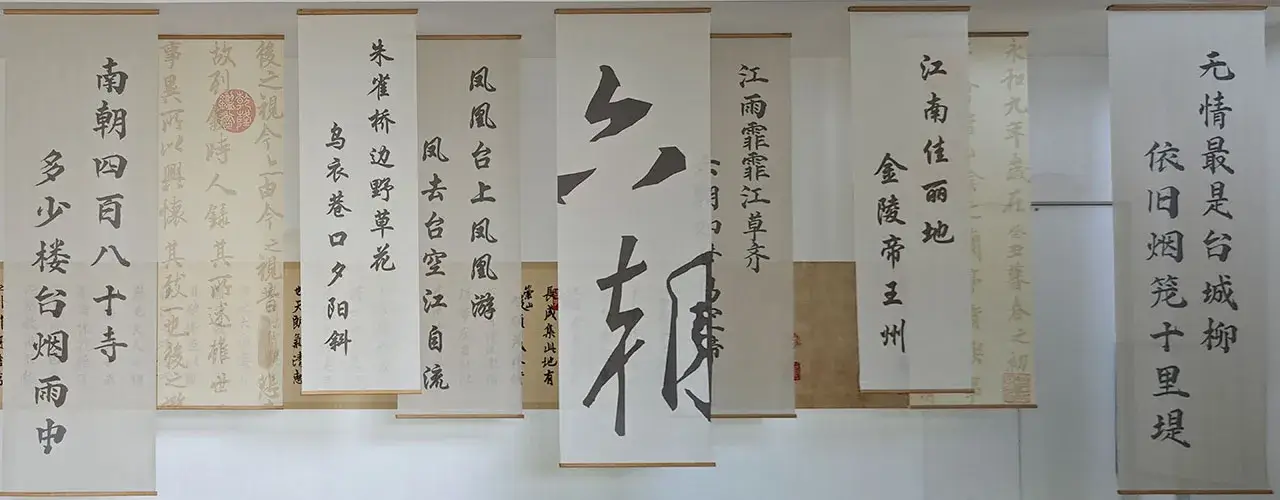 无情最是台城柳
依旧烟笼十里堤
永和九年歲在癸丑暮春之初
江南佳丽地
金陵帝王州
江雨霏霏江草齐
六朝
長咸集此地有
凤凰台上凤凰游
凤去台空江自流
朱雀桥边野草花
乌衣巷口夕阳斜
後之視今亦由今之視昔悲
故列叙時人錄其所述雖世
事異所以興懷其致一也後之
南朝四百八十寺
多少楼台烟雨中